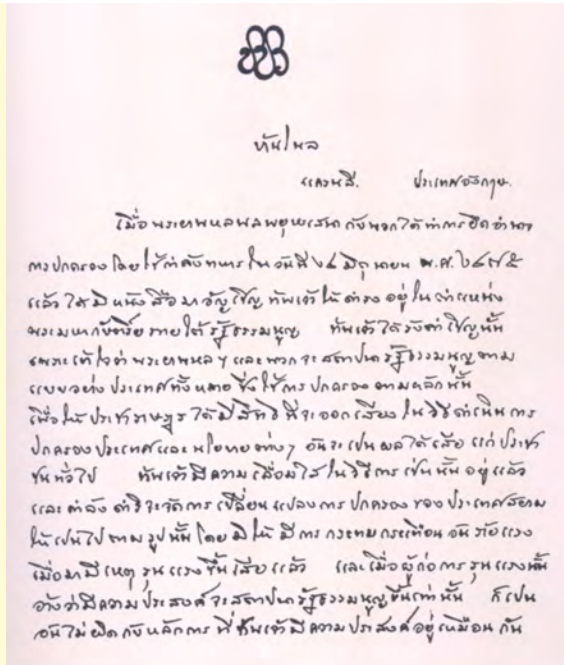 บ้านโนล
แครนลี. ประเทศอังกฤษ.
เมื่อพระยาพหลพลพยุหเสนา กับพวกได้ทำการยึดอำนาจ
การปกครองโดยใช้กำลังทหารในวันที่ ๒๔ มิถุนายน พ.ศ. ๒๔๗๕
แล้ว ได้มีหนังสือมาอัญเชิญข้าพเจ้าให้ดำรงอยู่ในตำแหน่ง
พระมหากษัตริย์ภายใต้รัฐธรรมนูญ ข้าพเจ้าได้รับคำเชิญนั้น
เพราะเข้าใจว่าพระยาพหลฯ และพวกจะสถาปนารัฐธรรมนูญตาม
แบบอย่างประเทศทั้งหลายซึ่งใช้การปกครองตามหลักนั้น
เพื่อให้ประชาราษฎรได้มีสิทธิที่จะออกเสียงในวิธีดำเนินการ
ปกครองประเทศและนโยบายต่างๆ อันจะเป็นผลได้เสียแก่ประชา
ชนทั่วไป ข้าพเจ้ามีความเลื่อมใสในวิธีการเช่นนั้นอยู่แล้ว
และกำลังดำริจะจัดการเปลี่ยนแปลงการปกครองของประเทศสยาม
ให้เป็นไปตามรูปนั้นโดยมิให้มีการกระทบกระเทือนอันร้ายแรง
เมื่อมามีเหตุรุนแรงขึ้นเสียแล้ว และเมื่อผู้ก่อการรุนแรงนั้น
อ้างว่ามีความประสงค์จะสถาปนารัฐธรรมนูญขึ้นเท่านั้น ก็เป็น
อันไม่ผิดกับหลักการที่ข้าพเจ้ามีความประสงค์อยู่เหมือนกัน